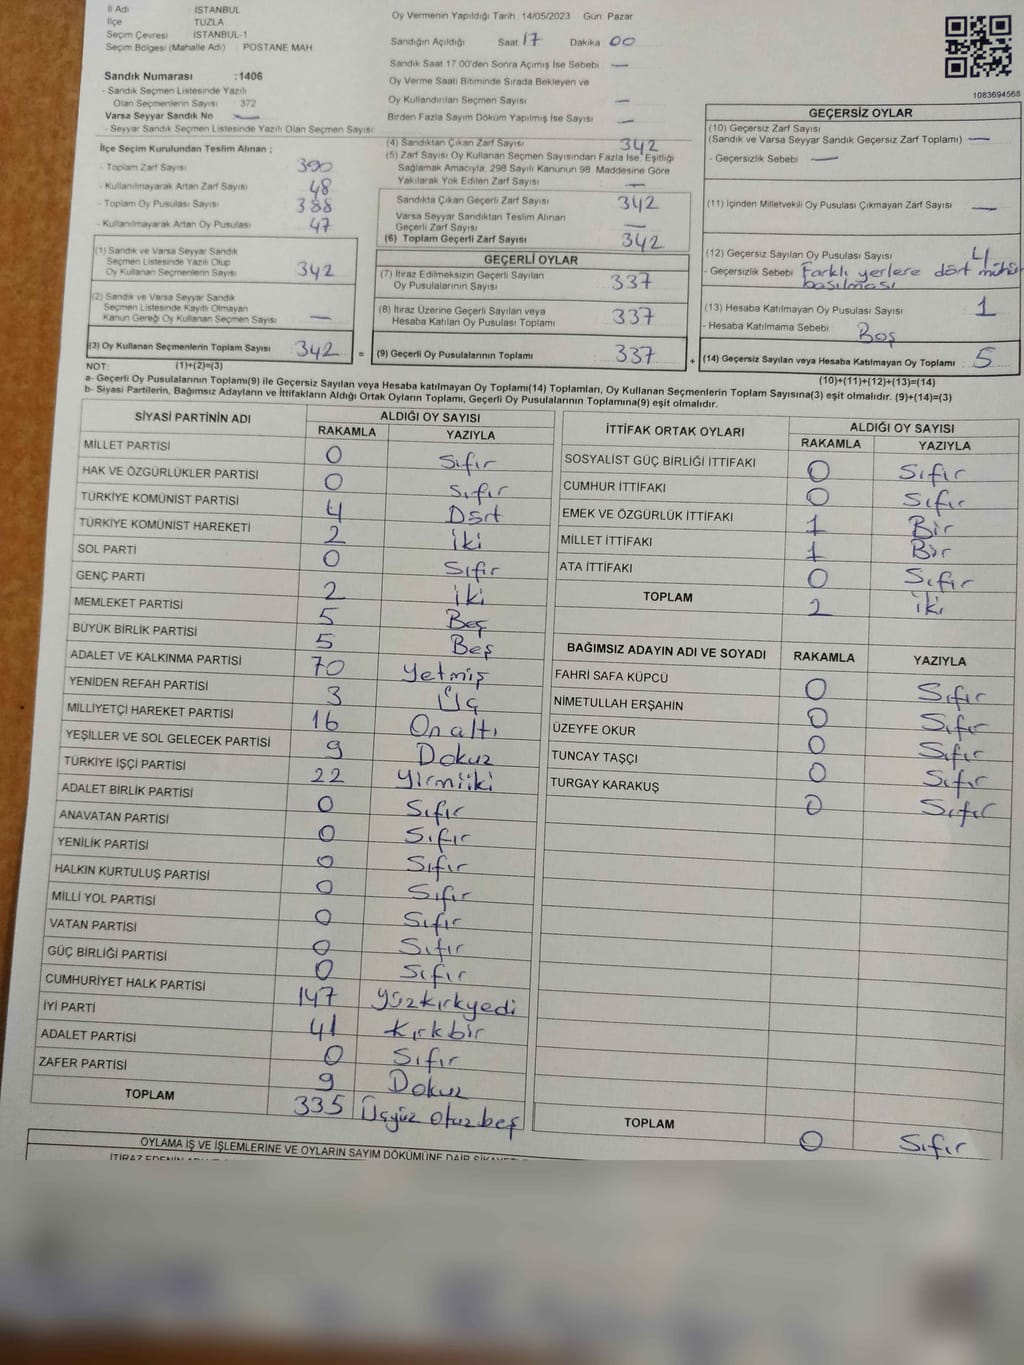 İl Adı : İSTANBUL
İlçe TUZLA
Seçim Çevresi İSTANBUL-1
Seçim Bölgesi (Mahalle Adı) : POSTANE MAH
Sandık Numarası :1406
- Sandık Seçmen Listesinde Yazılı
Olan Seçmenlerin Sayısı 372
Varsa Seyyar Sandık No —
- Seyyar Sandık Seçmen Listesinde Yazılı Olan Seçmen Sayısı: —
İlçe Seçim Kurulundan Teslim Alınan ;
- Toplam Zarf Sayısı 390
- Kullanılmayarak Artan Zarf Sayısı 48
- Toplam Oy Pusulası Sayısı 388
- Kullanılmayarak Artan Oy Pusulası 47
(1) Sandık ve Varsa Seyyar Sandık
Seçmen Listesinde Yazılı Olup
Oy Kullanan Seçmenlerin Sayısı 342
(2) Sandık ve Varsa Seyyar Sandık
Seçmen Listesinde Kayıtlı Olmayan
Kanun Gereği Oy Kullanan Seçmen Sayısı —
(3) Oy Kullanan Seçmenlerin Toplam Sayısı 342 =
Oy Vermenin Yapıldığı Tarih : 14/05/2023 Gün : Pazar
Sandığın Açıldığı Saat 17 Dakika 00
Sandık Saat 17.00'den Sonra Açılmış İse Sebebi —
Oy Verme Saati Bitiminde Sırada Bekleyen ve
Oy Kullandırılan Seçmen Sayısı —
Birden Fazla Sayım Döküm Yapılmış İse Sayısı —
(4) Sandıktan Çıkan Zarf Sayısı 342
(5) Zarf Sayısı Oy Kullanan Seçmen Sayısından Fazla İse, Eşitliği
Sağlamak Amacıyla, 298 Sayılı Kanunun 98. Maddesine Göre
Yakılarak Yok Edilen Zarf Sayısı —
Sandıkta Çıkan Geçerli Zarf Sayısı 342
Varsa Seyyar Sandıktan Teslim Alınan
Geçerli Zarf Sayısı —
(6) Toplam Geçerli Zarf Sayısı 342
GEÇERLİ OYLAR
(7) İtiraz Edilmeksizin Geçerli Sayılan
Oy Pusulalarının Sayısı 337
(8) İtiraz Üzerine Geçerli Sayılan veya
Hesaba Katılan Oy Pusulası Toplamı 337
(9) Geçerli Oy Pusulalarının Toplamı 337 +
1083694568
GEÇERSİZ OYLAR
(10) Geçersiz Zarf Sayısı
(Sandık ve Varsa Seyyar Sandık Geçersiz Zarf Toplamı) —
- Geçersizlik Sebebi : —
(11) İçinden Milletvekili Oy Pusulası Çıkmayan Zarf Sayısı —
(12) Geçersiz Sayılan Oy Pusulası Sayısı 4
- Geçersizlik Sebebi Farklı yerlere dört mühür
basılması
(13) Hesaba Katılmayan Oy Pusulası Sayısı 1
- Hesaba Katılmama Sebebi : Boş
(14) Geçersiz Sayılan veya Hesaba Katılmayan Oy Toplamı : 5
NOT: (1)+(2)=(3) (10)+(11)+(12)+(13)=(14)
a- Geçerli Oy Pusulalarının Toplamı(9) ile Geçersiz Sayılan veya Hesaba katılmayan Oy Toplamı(14) Toplamları, Oy Kullanan Seçmenlerin Toplam Sayısına(3) eşit olmalıdır. (9)+(14)=(3)
b- Siyasi Partilerin, Bağımsız Adayların ve İttifakların Aldığı Ortak Oyların Toplamı, Geçerli Oy Pusulalarının Toplamına(9) eşit olmalıdır.
SİYASİ PARTİNİN ADI ALDIĞI OY SAYISI
RAKAMLA YAZIYLA
MİLLET PARTİSİ 0 Sıfır
HAK VE ÖZGÜRLÜKLER PARTİSİ 0 Sıfır
TÜRKİYE KOMÜNİST PARTİSİ 4 Dört
TÜRKİYE KOMÜNİST HAREKETİ 2 İki
SOL PARTİ 0 Sıfır
GENÇ PARTİ 2 İki
MEMLEKET PARTİSİ 5 Beş
BÜYÜK BİRLİK PARTİSİ 5 Beş
ADALET VE KALKINMA PARTİSİ 70 Yetmiş
YENİDEN REFAH PARTİSİ 3 Üç
MİLLİYETÇİ HAREKET PARTİSİ 16 Onaltı
YEŞİLLER VE SOL GELECEK PARTİSİ 9 Dokuz
TÜRKİYE İŞÇİ PARTİSİ 22 Yirmiiki
ADALET BİRLİK PARTİSİ 0 Sıfır
ANAVATAN PARTİSİ 0 Sıfır
YENİLİK PARTİSİ 0 Sıfır
HALKIN KURTULUŞ PARTİSİ 0 Sıfır
MİLLİ YOL PARTİSİ 0 Sıfır
VATAN PARTİSİ 0 Sıfır
GÜÇ BİRLİĞİ PARTİSİ 0 Sıfır
CUMHURİYET HALK PARTİSİ 147 Yüzkırkyedi
İYİ PARTİ 41 Kırkbir
ADALET PARTİSİ 0 Sıfır
ZAFER PARTİSİ 9 Dokuz
TOPLAM 335 Üçyüz otuzbeş
İTTİFAK ORTAK OYLARI ALDIĞI OY SAYISI
RAKAMLA YAZIYLA
SOSYALİST GÜÇ BİRLİĞİ İTTİFAKI 0 Sıfır
CUMHUR İTTİFAKI 0 Sıfır
EMEK VE ÖZGÜRLÜK İTTİFAKI 1 Bir
MİLLET İTTİFAKI 1 Bir
ATA İTTİFAKI 0 Sıfır
TOPLAM 2 İki
BAĞIMSIZ ADAYIN ADI VE SOYADI RAKAMLA YAZIYLA
FAHRİ SAFA KÜPCÜ 0 Sıfır
NİMETULLAH ERŞAHİN 0 Sıfır
ÜZEYFE OKUR 0 Sıfır
TUNCAY TAŞÇI 0 Sıfır
TURGAY KARAKUŞ 0 Sıfır
TOPLAM 0 Sıfır
OYLAMA İŞ VE İŞLEMLERİNE VE OYLARIN SAYIM DÖKÜMÜNE DAİR